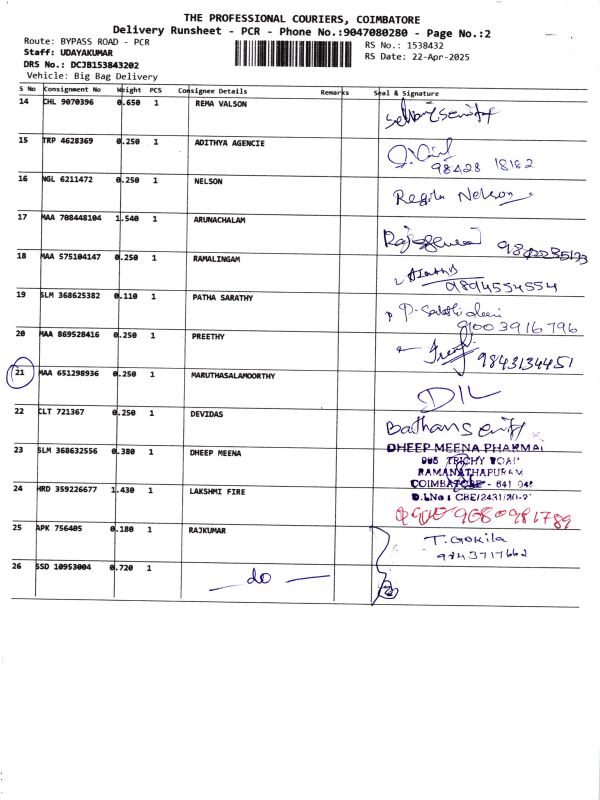 THE PROFESSIONAL COURIERS, COIMBATORE
Delivery Runsheet - PCR - Phone No.:9047080280 - Page No.:2
Route: BYPASS ROAD - PCR
RS No.: 1538432
Staff: UDAYAKUMAR
RS Date: 22-Apr-2025
DRS No.: DCJB153843202
Vehicle: Big Bag Delivery
S No Consignment No Weight PCS Consignee Details Remarks Seal & Signature
14 CHL 9070396 0.650 1 REMA VALSON
15 TRP 4628369 0.250 1 ADITHYA AGENCIE
98428 18182
16 NGL 6211472 0.250 1 NELSON Regila Nelson
17 MAA 708448104 1.540 1 ARUNACHALAM
18 MAA 575104147 0.250 1 RAMALINGAM
9894554554
19 SLM 368625382 0.110 1 PATHA SARATHY
9003916796
20 MAA 869528416 0.250 1 PREETHY
9843134451
21 MAA 651298936 0.250 1 MARUTHASALAMOORTHY DIL
22 CLT 721367 0.250 1 DEVIDAS
23 SLM 368632556 0.380 1 DHEEP MEENA
DHEEP MEENA PHARMA
TRICHY ROAD
RAMANATHAPURAM
COIMBATORE - 641 045
D.LNo : CBE/2431/20-2
24 HRD 359226677 1.430 1 LAKSHMI FIRE
9080981789
25 APK 756405 0.180 1 RAJKUMAR T. Gokila
9843717662
26 SSD 10953004 0.720 1 — do —